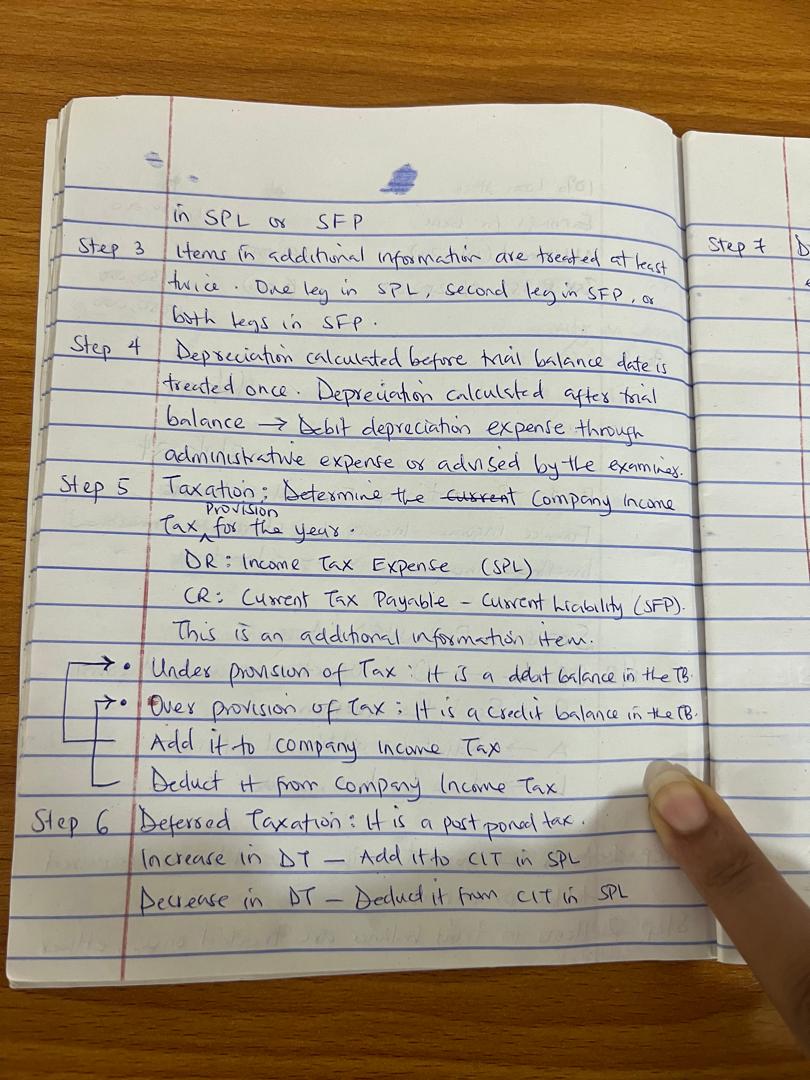 in SPL or SFP
Step 3 Items in additional information are treated at least
twice. One leg in SPL, second leg in SFP, or
both legs in SFP.
Step 4 Depreciation calculated before trial balance date is
treated once. Depreciation calculated after trial
balance → Debit depreciation expense through
administrative expense or advised by the examiner.
Step 5 Taxation: Determine the current Company Income
Tax provision for the year.
DR: Income Tax Expense (SPL)
CR: Current Tax Payable - Current Liability (SFP).
This is an additional information item.
• Under provision of Tax: It is a debit balance in the TB.
• Over provision of Tax: It is a credit balance in the TB.
Add it to company income Tax
Deduct it from Company Income Tax
Step 6 Deferred Taxation: It is a post poned tax.
Increase in DT - Add it to CIT in SPL
Decrease in DT - Deduct it from CIT in SPL
Step 7